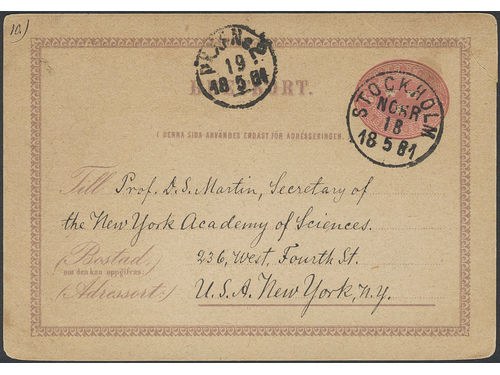 10.)
19
18 5 81
STOCKHOLM
NORR
18
18 5 81
( DENNA SIDA ANVÄNDES ENDAST FÖR ADRESSERINGEN. )
Till Prof. D. S. Martin, Secretary of
the New York Academy of Sciences.
(Bostad, 236, West, Fourth St.
om den kan uppgifvas.)
(Adressort:) U. S. A. New York, N.Y.